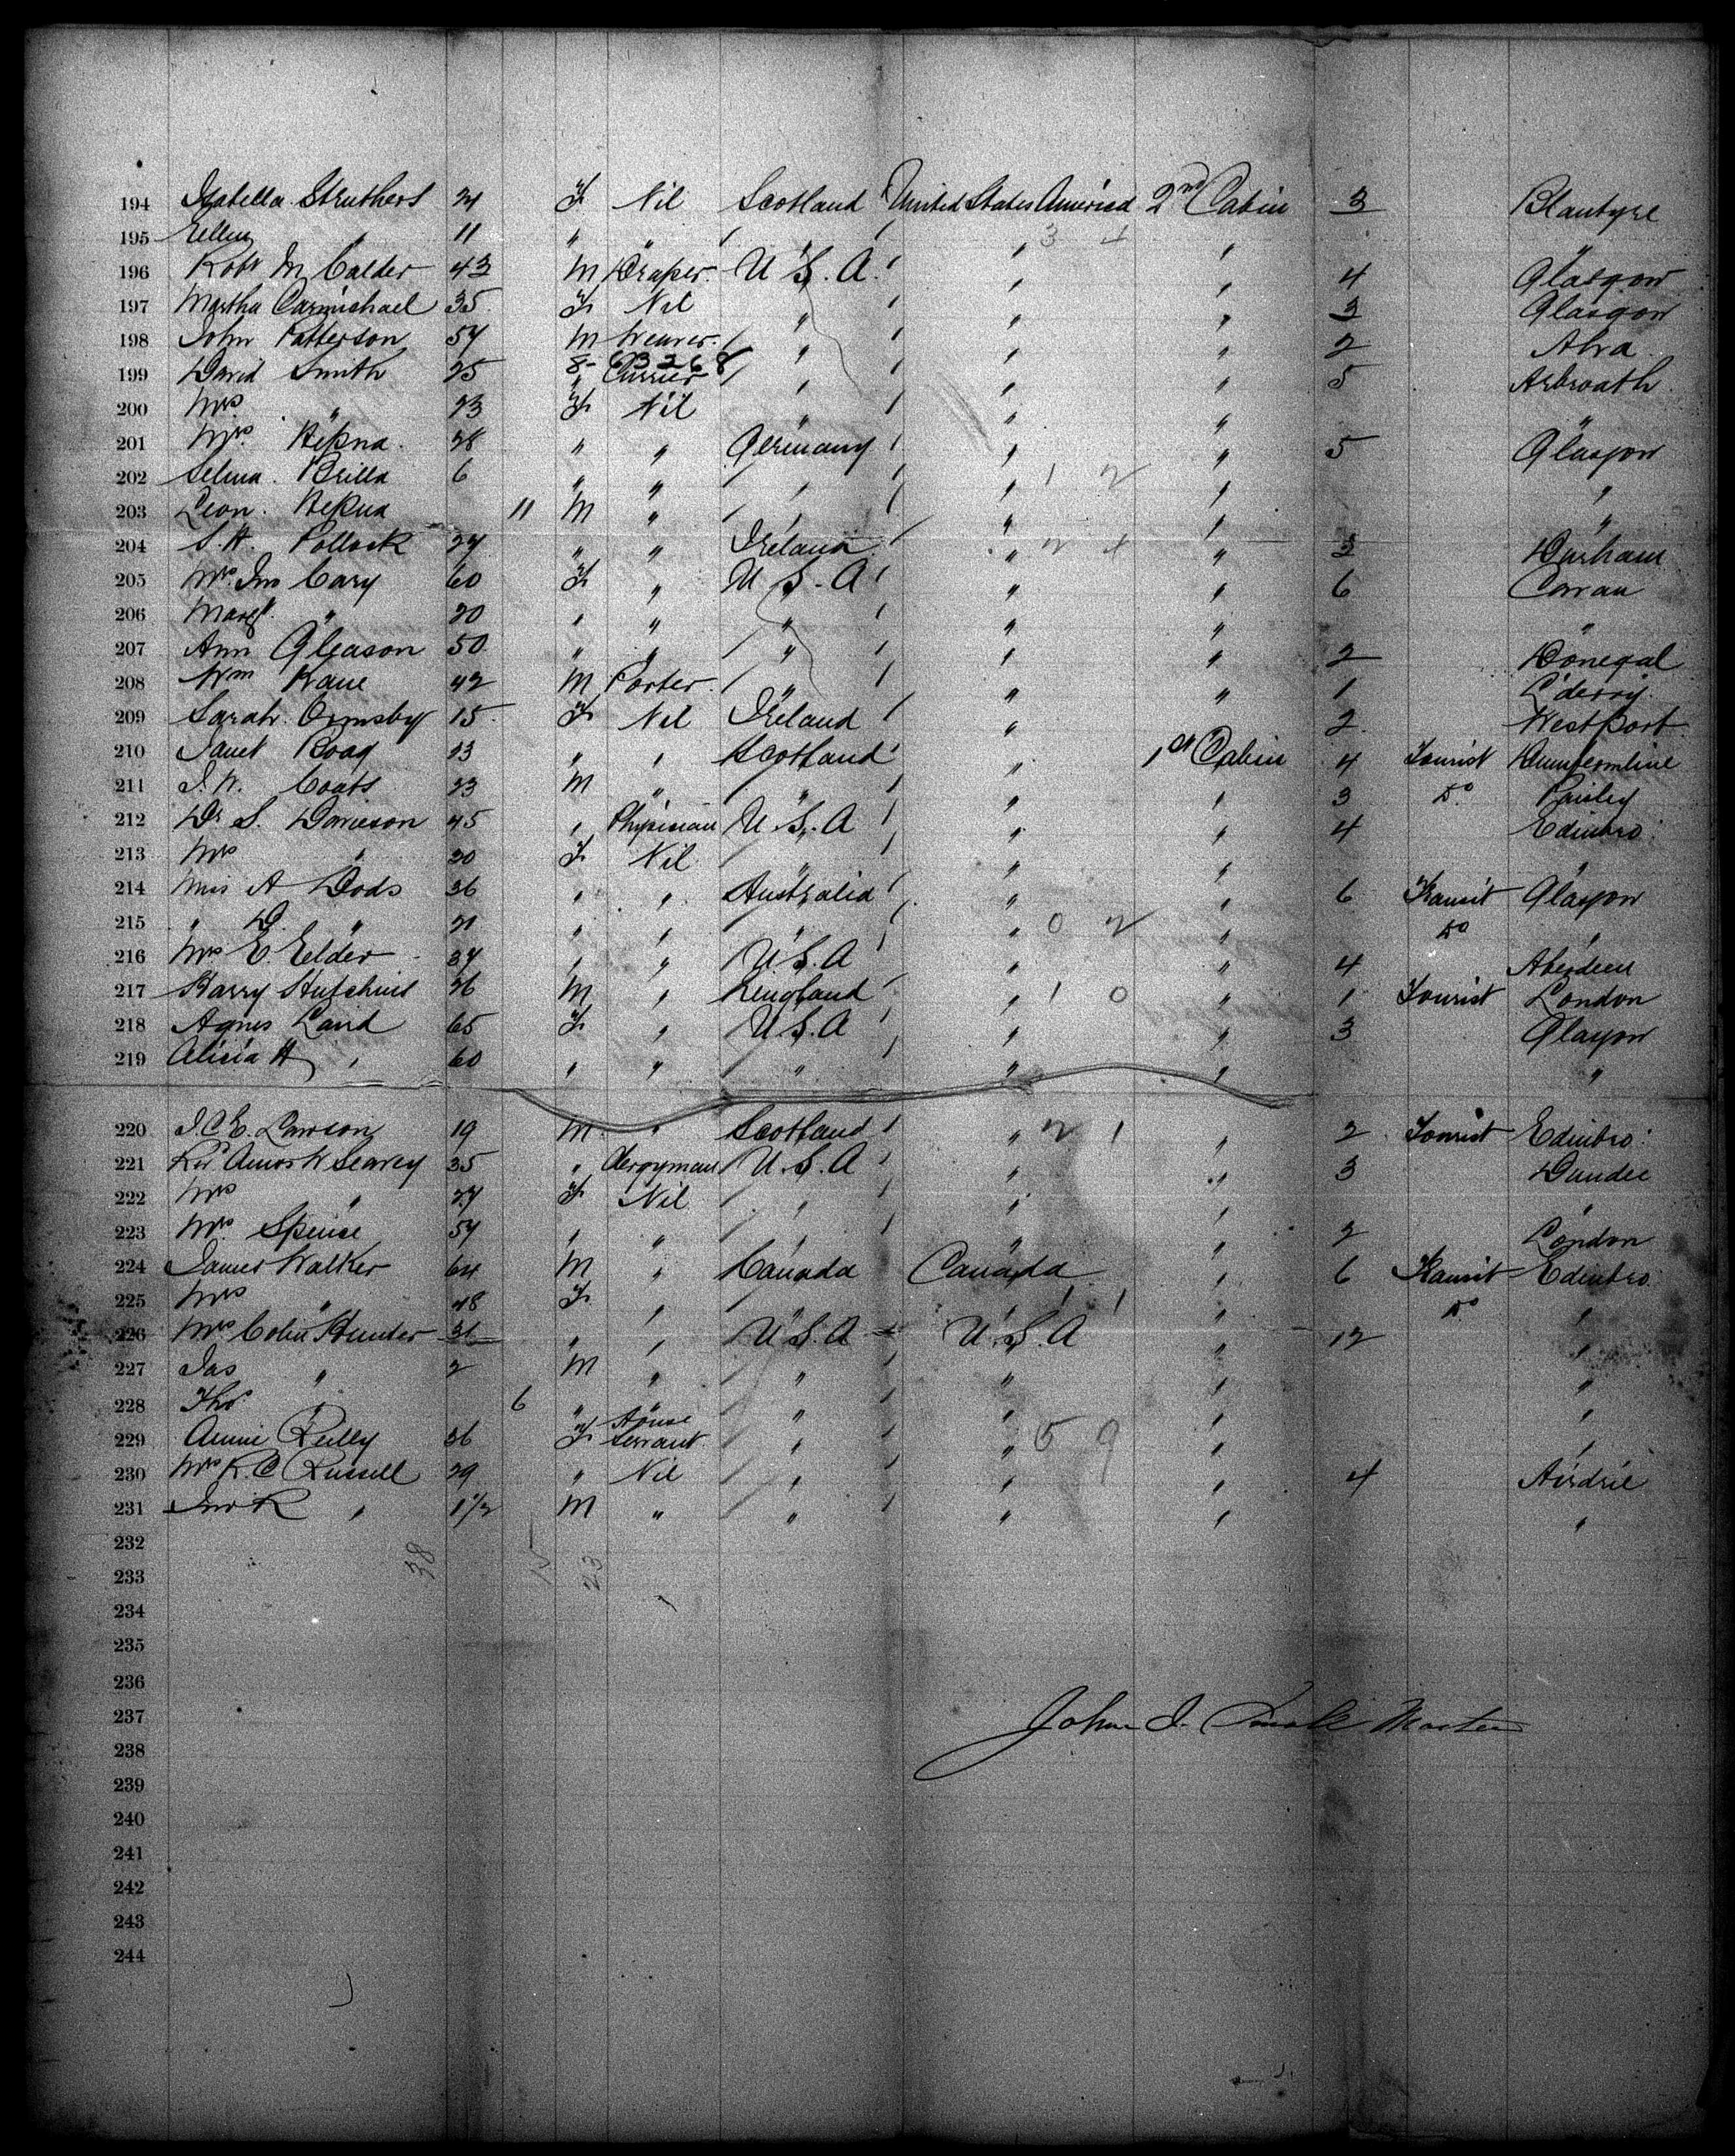 194 Isabella Struthers 24 F Nil Scotland United States America 2nd Cabin 3 Blantyre
195 Ellen " 11 " " " " " "
196 Robt M Calder 43 M Draper U.S.A. " " 4 Glasgow
197 Martha Carmichael 35 F Nil " " " 3 Glasgow
198 John Patterson 54 M Weaver " " " 2 Alva
8-63268
199 David Smith 25 " Currier " " " 5 Arbroath
200 Mrs " 23 F Nil " " " "
201 Mrs 28 " " Germany " " 5 Glasgow
202 Selma Brilla 6 " " " " " "
203 Leon 11 M " " " " "
204 S. H. Pollock 24 " " Ireland " " Durham
205 Mrs Jno Cary 60 F " U.S.A " " 6
206 Margt " 20 " " " " " "
207 Ann Gleason 50 " " " " " 2 Donegal
208 Wm Kane 42 M Porter " " " 1 L'derry
209 Sarah Ormsby 15 F Nil Ireland " " 2 Westport
210 Janet Boag 23 " " Scotland " 1st Cabin 4 Tourist Dunfermline
211 J. W. Coats 23 M " " " " 3 Do Paisley
212 Dr S. Davieson 45 " Physician U.S.A " " 4 Edinbro
213 Mrs " 30 F Nil " " " "
214 Miss A Dods 36 " " Australia " " 6 Transit Glasgow
215 " D. " 21 " " " " " Do "
216 Mrs E. Elder 34 " " U.S.A " " 4 Aberdeen
217 Harry Hutchins 26 M " England " " 1 Tourist London
218 Agnes Laird 65 F " U.S.A " " 3 Glasgow
219 Alicia H " 60 " " " " " "
220 J.C.E. Lawson 19 M " Scotland " " 2 Tourist Edinbro
221 Rev Amos W Seavey 35 " Clergyman U.S.A " " 3 Dundee
222 Mrs " 27 F Nil " " " "
223 Mrs Spence 54 " " " " " 2 London
224 James Walker 64 M " Canada Canada " 6 Transit Edinbro
225 Mrs " 48 F " " " " Do "
226 Mrs Colin Hunter 31 " " U.S.A U.S.A " 12 "
227 Jas " 2 M " " " " "
228 Thos " 6 " " " " " "
229 Annie Reilly 36 F House Servant " " " "
230 Mrs R. C Russell 29 " Nil " " " 4 Airdrie
231 Jno R " 1½ M " " " " "
232
38 15 23
233
234
235
236
237 John I. Master
238
239
240
241
242
243
244